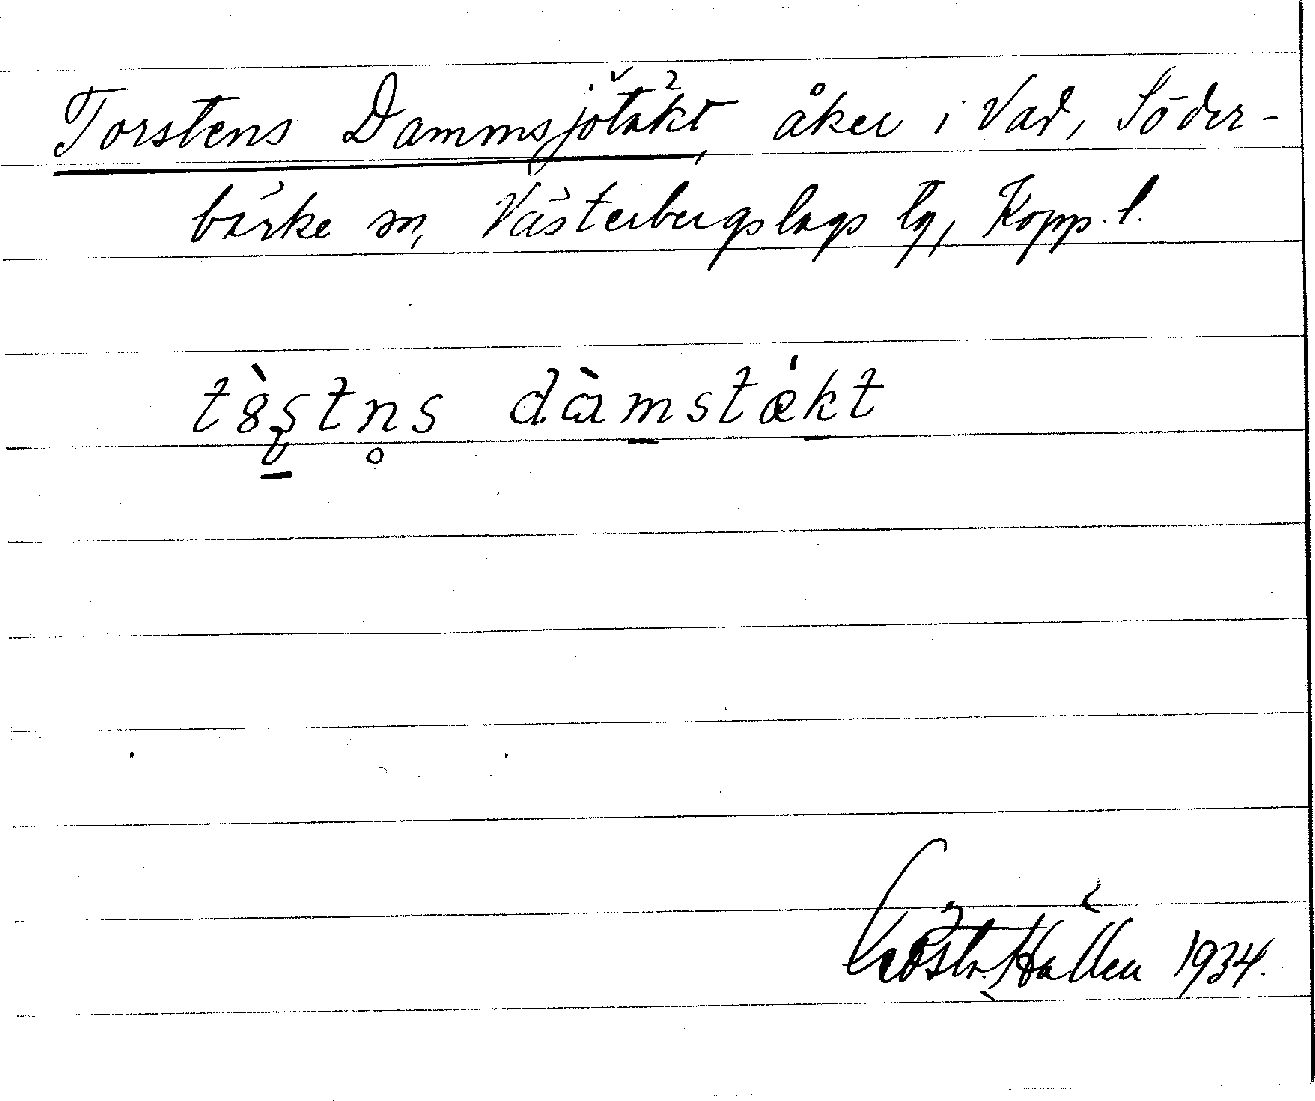 Torstens Dammsjötäkt, åker i Vad, Söder-
bärke sn, Västerbergslags tg, Kopp. l.
tɞ̀ștn̥s dàmstǽkt
Gösta Hållen 1934.